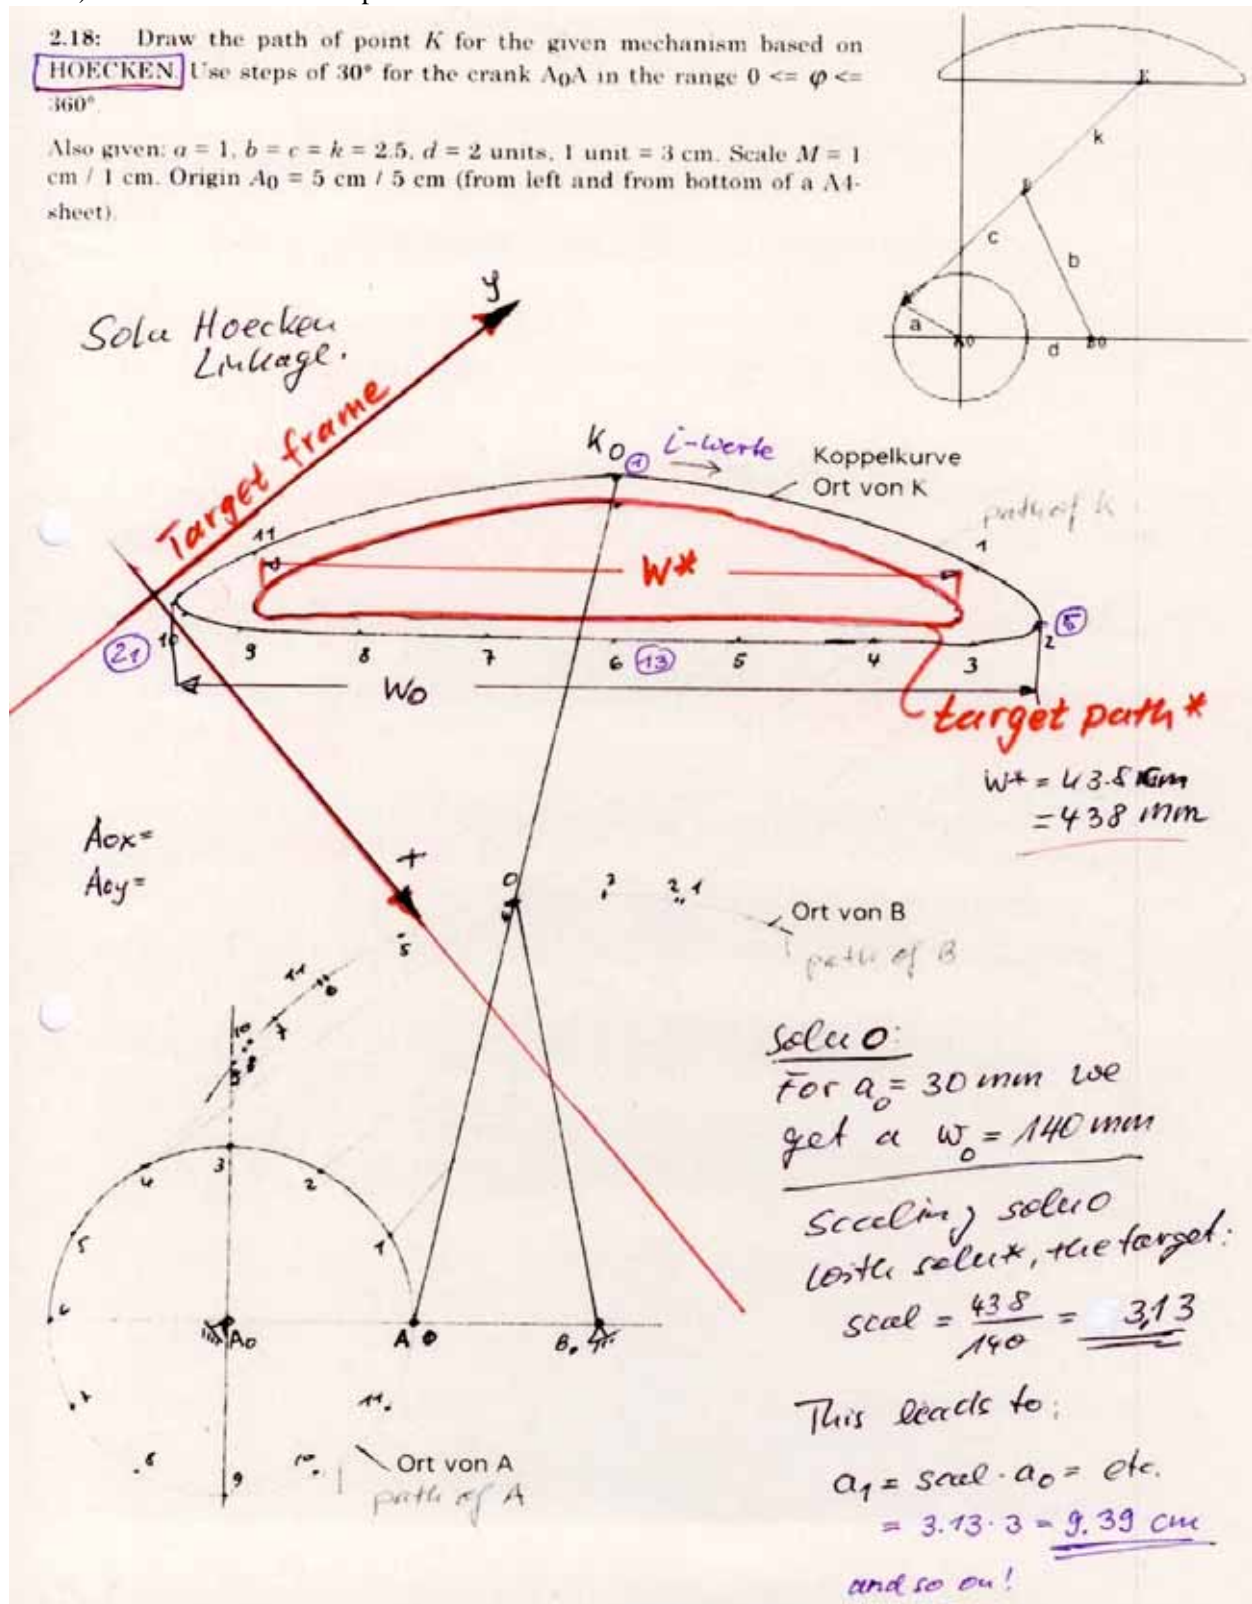 2.18: Draw the path of point K for the given mechanism based on
HOECKEN. Use steps of 30° for the crank A0A in the range 0 <= φ <=
360°.
Also given: a = 1, b = c = k = 2.5, d = 2 units, 1 unit = 3 cm. Scale M = 1
cm / 1 cm. Origin A0 = 5 cm / 5 cm (from left and from bottom of a A4-
sheet).
K
k
B
c
b
A
a
A0
d
B0
Solu Hoecken
Linkage.
y
Target frame
K0
1
i-Werte
Koppelkurve
Ort von K
path of K
11
1
W*
21
10
9
8
7
6
13
5
4
3
2
5
W0
target path*
W* = 43.8 cm
= 438 mm
A0x=
A0y=
x
0
3
2
1
Ort von B
path of B
5
11
6
10
7
8
9
Solu 0:
For a0 = 30 mm we
get a W0 = 140 mm
Scaling solu 0
with solu*, the target:
scal = 438/140 = 3,13
This leads to:
a1 = scal · a0 = etc.
= 3.13 · 3 = 9.39 cm
and so on!
3
4
2
5
1
6
A0
A
0
B0
7
11
8
10
9
Ort von A
path of A